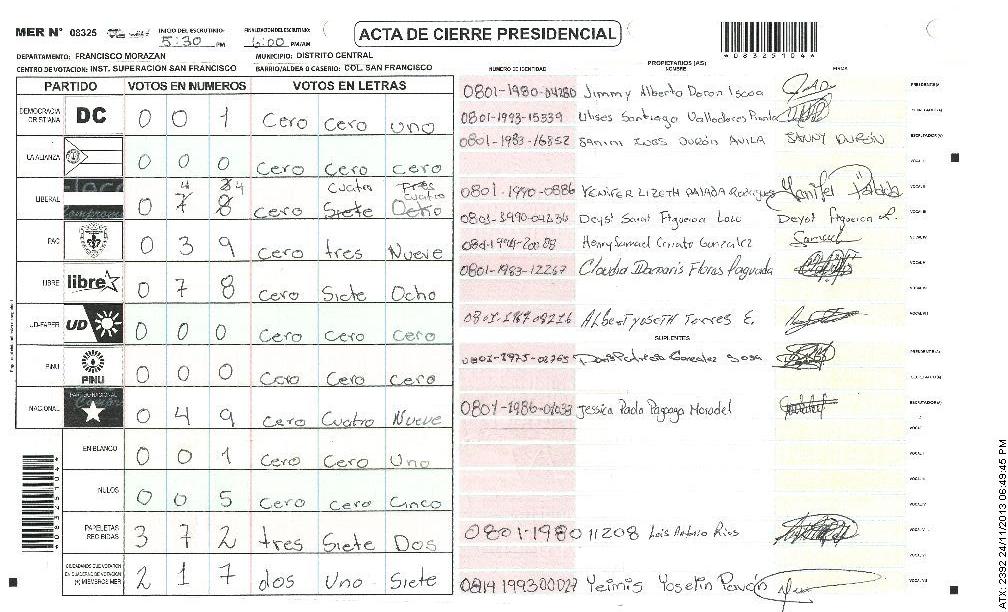 MER N° 08325 INICIO DEL ESCRUTINIO: 5:30 PM FINALIZACION DEL ESCRUTINIO: 6:00 PM/AM
ACTA DE CIERRE PRESIDENCIAL
*08325104*
DEPARTAMENTO: FRANCISCO MORAZAN MUNICIPIO: DISTRITO CENTRAL
CENTRO DE VOTACION: INST. SUPERACION SAN FRANCISCO BARRIO/ALDEA O CASERIO: COL. SAN FRANCISCO
PARTIDO VOTOS EN NUMEROS VOTOS EN LETRAS
DEMOCRACIA CRISTIANA DC 0 0 1 Cero Cero uno
LA ALIANZA 0 0 0 Cero Cero Cero
4 4 Cuatro Tres Cuatro
LIBERAL 0 7 8 Cero Siete Ocho
PAC 0 3 9 Cero tres Nueve
LIBRE libre 0 7 8 Cero Siete Ocho
UD-FAPER UD 0 0 0 Cero Cero Cero
PINU PINU 0 0 0 Cero Cero Cero
NACIONAL 0 4 9 Cero Cuatro Nueve
EN BLANCO 0 0 1 Cero Cero Uno
NULOS 0 0 5 Cero cero Cinco
PAPELETAS RECIBIDAS 3 7 2 tres Siete Dos
CIUDADANOS QUE VOTARON EN CUADERNO DE VOTACION (+) MIEMBROS MER 2 1 7 dos Uno Siete
NUMERO DE IDENTIDAD PROPIETARIOS (AS) NOMBRE FIRMA
0801-1980-04280 Jimmy Alberto PRESIDENTE(A)
0801-1993-15539 Ulises Santiago Valladares
0801-1983-16852 INES DURÓN AVILA SANNY DURÓN ESCRUTADOR(A)
VOCAL I
0801-1990-0886 YENIFER LIZETH Rodriguez VOCAL II
Deysi Figueroa VOCAL III
Henry Samuel Gonzalez Samuel VOCAL IV
0801-1983-12267 Claudia Damaris Flores Paguada VOCAL V
Torres E.
SUPLENTES
Gonzalez Sosa PRESIDENTE(A)
0801-1986-01038 Jessica Paola ESCRUTADOR(A)
0801-198011208 Luis Antonio Rios
Yeimis Yoselin Pavón
ATX: 2392 24/11/2013 06:49:45 PM